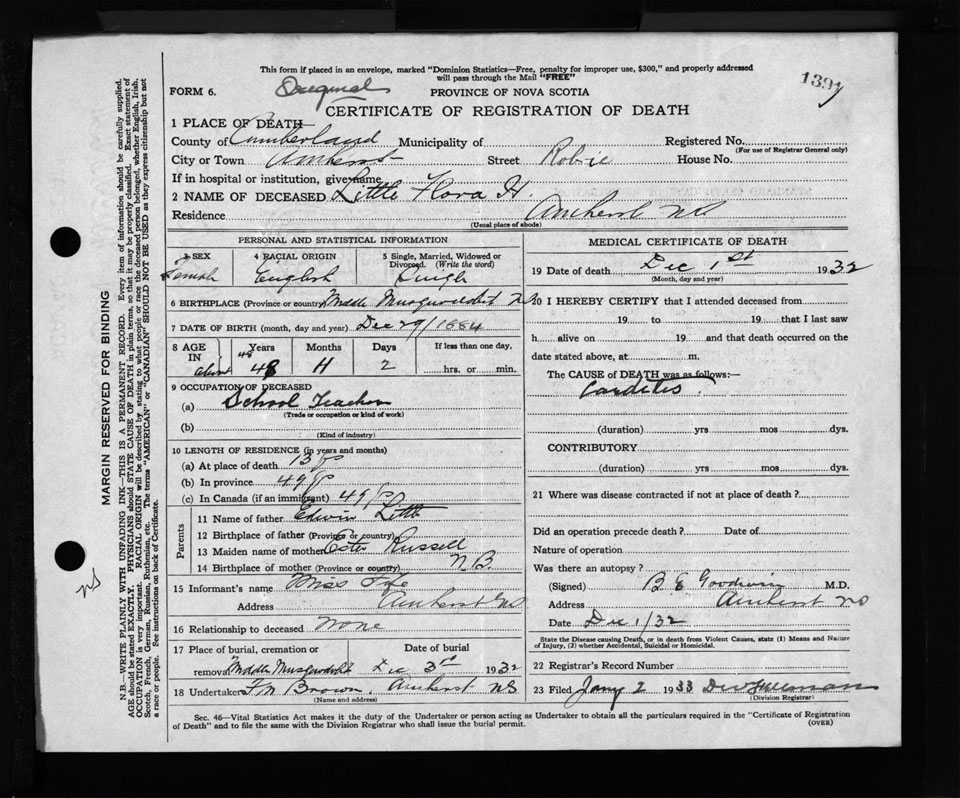 This form if placed in an envelope, marked "Dominion Statistics—Free, penalty for improper use, $300," and properly addressed
will pass through the Mail "FREE"
1391
FORM 6. Original PROVINCE OF NOVA SCOTIA
CERTIFICATE OF REGISTRATION OF DEATH
1 PLACE OF DEATH
County of Cumberland Municipality of Registered No.
(For use of Registrar General only)
City or Town Amherst Street Robie House No.
If in hospital or institution, give name
2 NAME OF DECEASED Little Flora H.
Residence Amherst NS
(Usual place of abode)
PERSONAL AND STATISTICAL INFORMATION
3 SEX 4 RACIAL ORIGIN 5 Single, Married, Widowed or
Divorced (Write the word)
Female English Single
6 BIRTHPLACE (Province or country) Middle Musquodobit NS
7 DATE OF BIRTH (month, day and year) Dec 29/1884
8 AGE IN Years Months Days If less than one day,
about 48 48 11 2 hrs. or min.
9 OCCUPATION OF DECEASED
(a) School Teacher
(Trade or occupation or kind of work)
(b)
(Kind of industry)
10 LENGTH OF RESIDENCE (in years and months)
(a) At place of death 13 yrs
(b) In province 49 yrs
(c) In Canada (if an immigrant) 49 yrs
Parents
11 Name of father Edwin Little
12 Birthplace of father (Province or country)
13 Maiden name of mother Ester Russell
14 Birthplace of mother (Province or country) N.B.
15 Informant's name Miss
Address Amherst NS
16 Relationship to deceased None
17 Place of burial, cremation or Date of burial
removal Middle Musquodobit Dec 3rd 1932
18 Undertaker F N Brown, Amherst NS
(Name and address)
MEDICAL CERTIFICATE OF DEATH
19 Date of death Dec 1st 1932
(Month, day and year)
20 I HEREBY CERTIFY that I attended deceased from
19 to 19 that I last saw
h alive on 19 and that death occurred on the
date stated above, at m.
The CAUSE of DEATH was as follows:—
Carditis
(duration) yrs mos dys.
CONTRIBUTORY
(duration) yrs mos dys.
21 Where was disease contracted if not at place of death?
Did an operation precede death? Date of
Nature of operation
Was there an autopsy?
(Signed) B E Goodwin M.D.
Address Amherst NS
Date Dec 1/32
State the Disease causing Death, or in death from Violent Causes, state (1) Means and Nature
of Injury, (2) whether Accidental, Suicidal or Homicidal.
22 Registrar's Record Number
23 Filed Jany 2 1933
(Division Registrar)
Sec. 46—Vital Statistics Act makes it the duty of the Undertaker or person acting as Undertaker to obtain all the particulars required in the "Certificate of Registration
of Death" and to file the same with the Division Registrar who shall issue the burial permit. (OVER)
MARGIN RESERVED FOR BINDING
N.B.—WRITE PLAINLY WITH UNFADING INK—THIS IS A PERMANENT RECORD. Every item of information should be carefully supplied.
AGE should be stated EXACTLY. PHYSICIANS should STATE CAUSE OF DEATH in plain terms, so that it may be properly classified. Exact statement of
OCCUPATION is very important. RACIAL ORIGIN will be described by stating to what people or race the deceased person belonged, whether English, Irish,
Scotch, French, German, Russian, Ruthenian, etc. The terms "AMERICAN" or "CANADIAN" SHOULD NOT BE USED as they express citizenship but not
a race or people. See instructions on back of Certificate.
NS